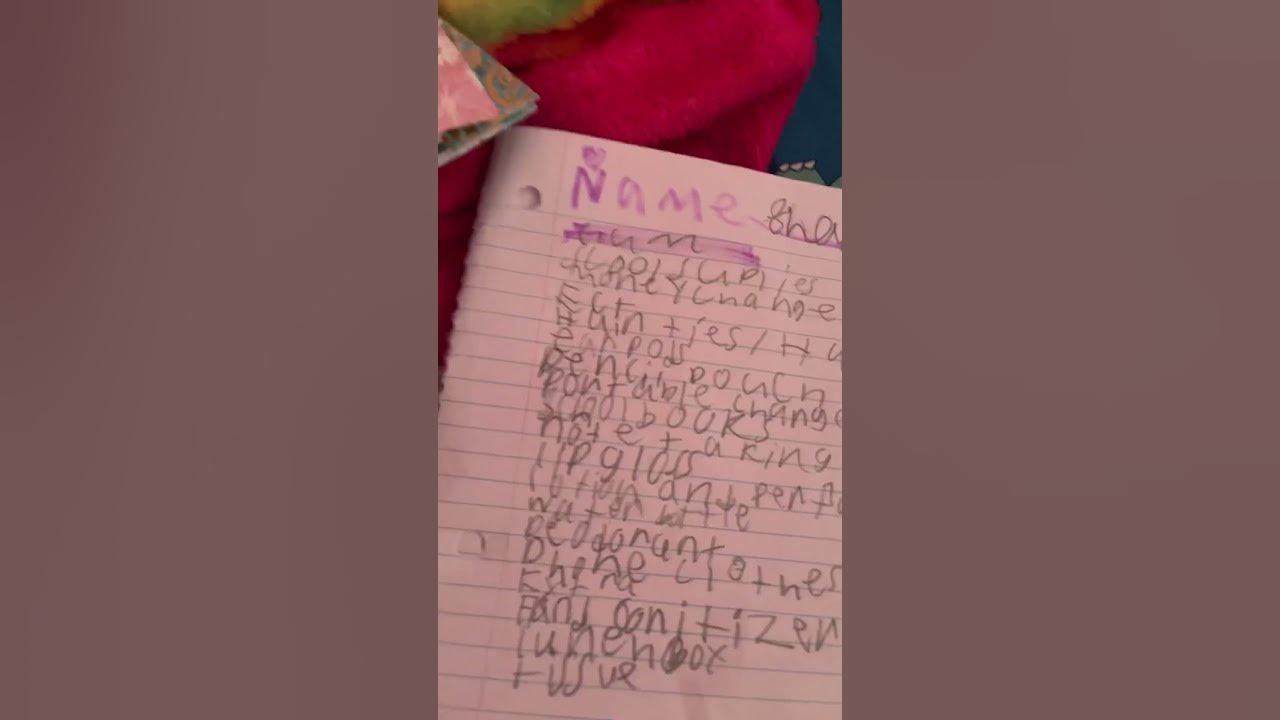 Name Sha
scoolsupies
money change
Ect
Hain ties/Hu
Earpods
Pencil pouch
Pontable change
scoolbooks
note taking
lipgloss
lotion ant penf
waten bottle
Deodorant
phone
Extra clothes
Hand sanitizen
lunch box
tissue